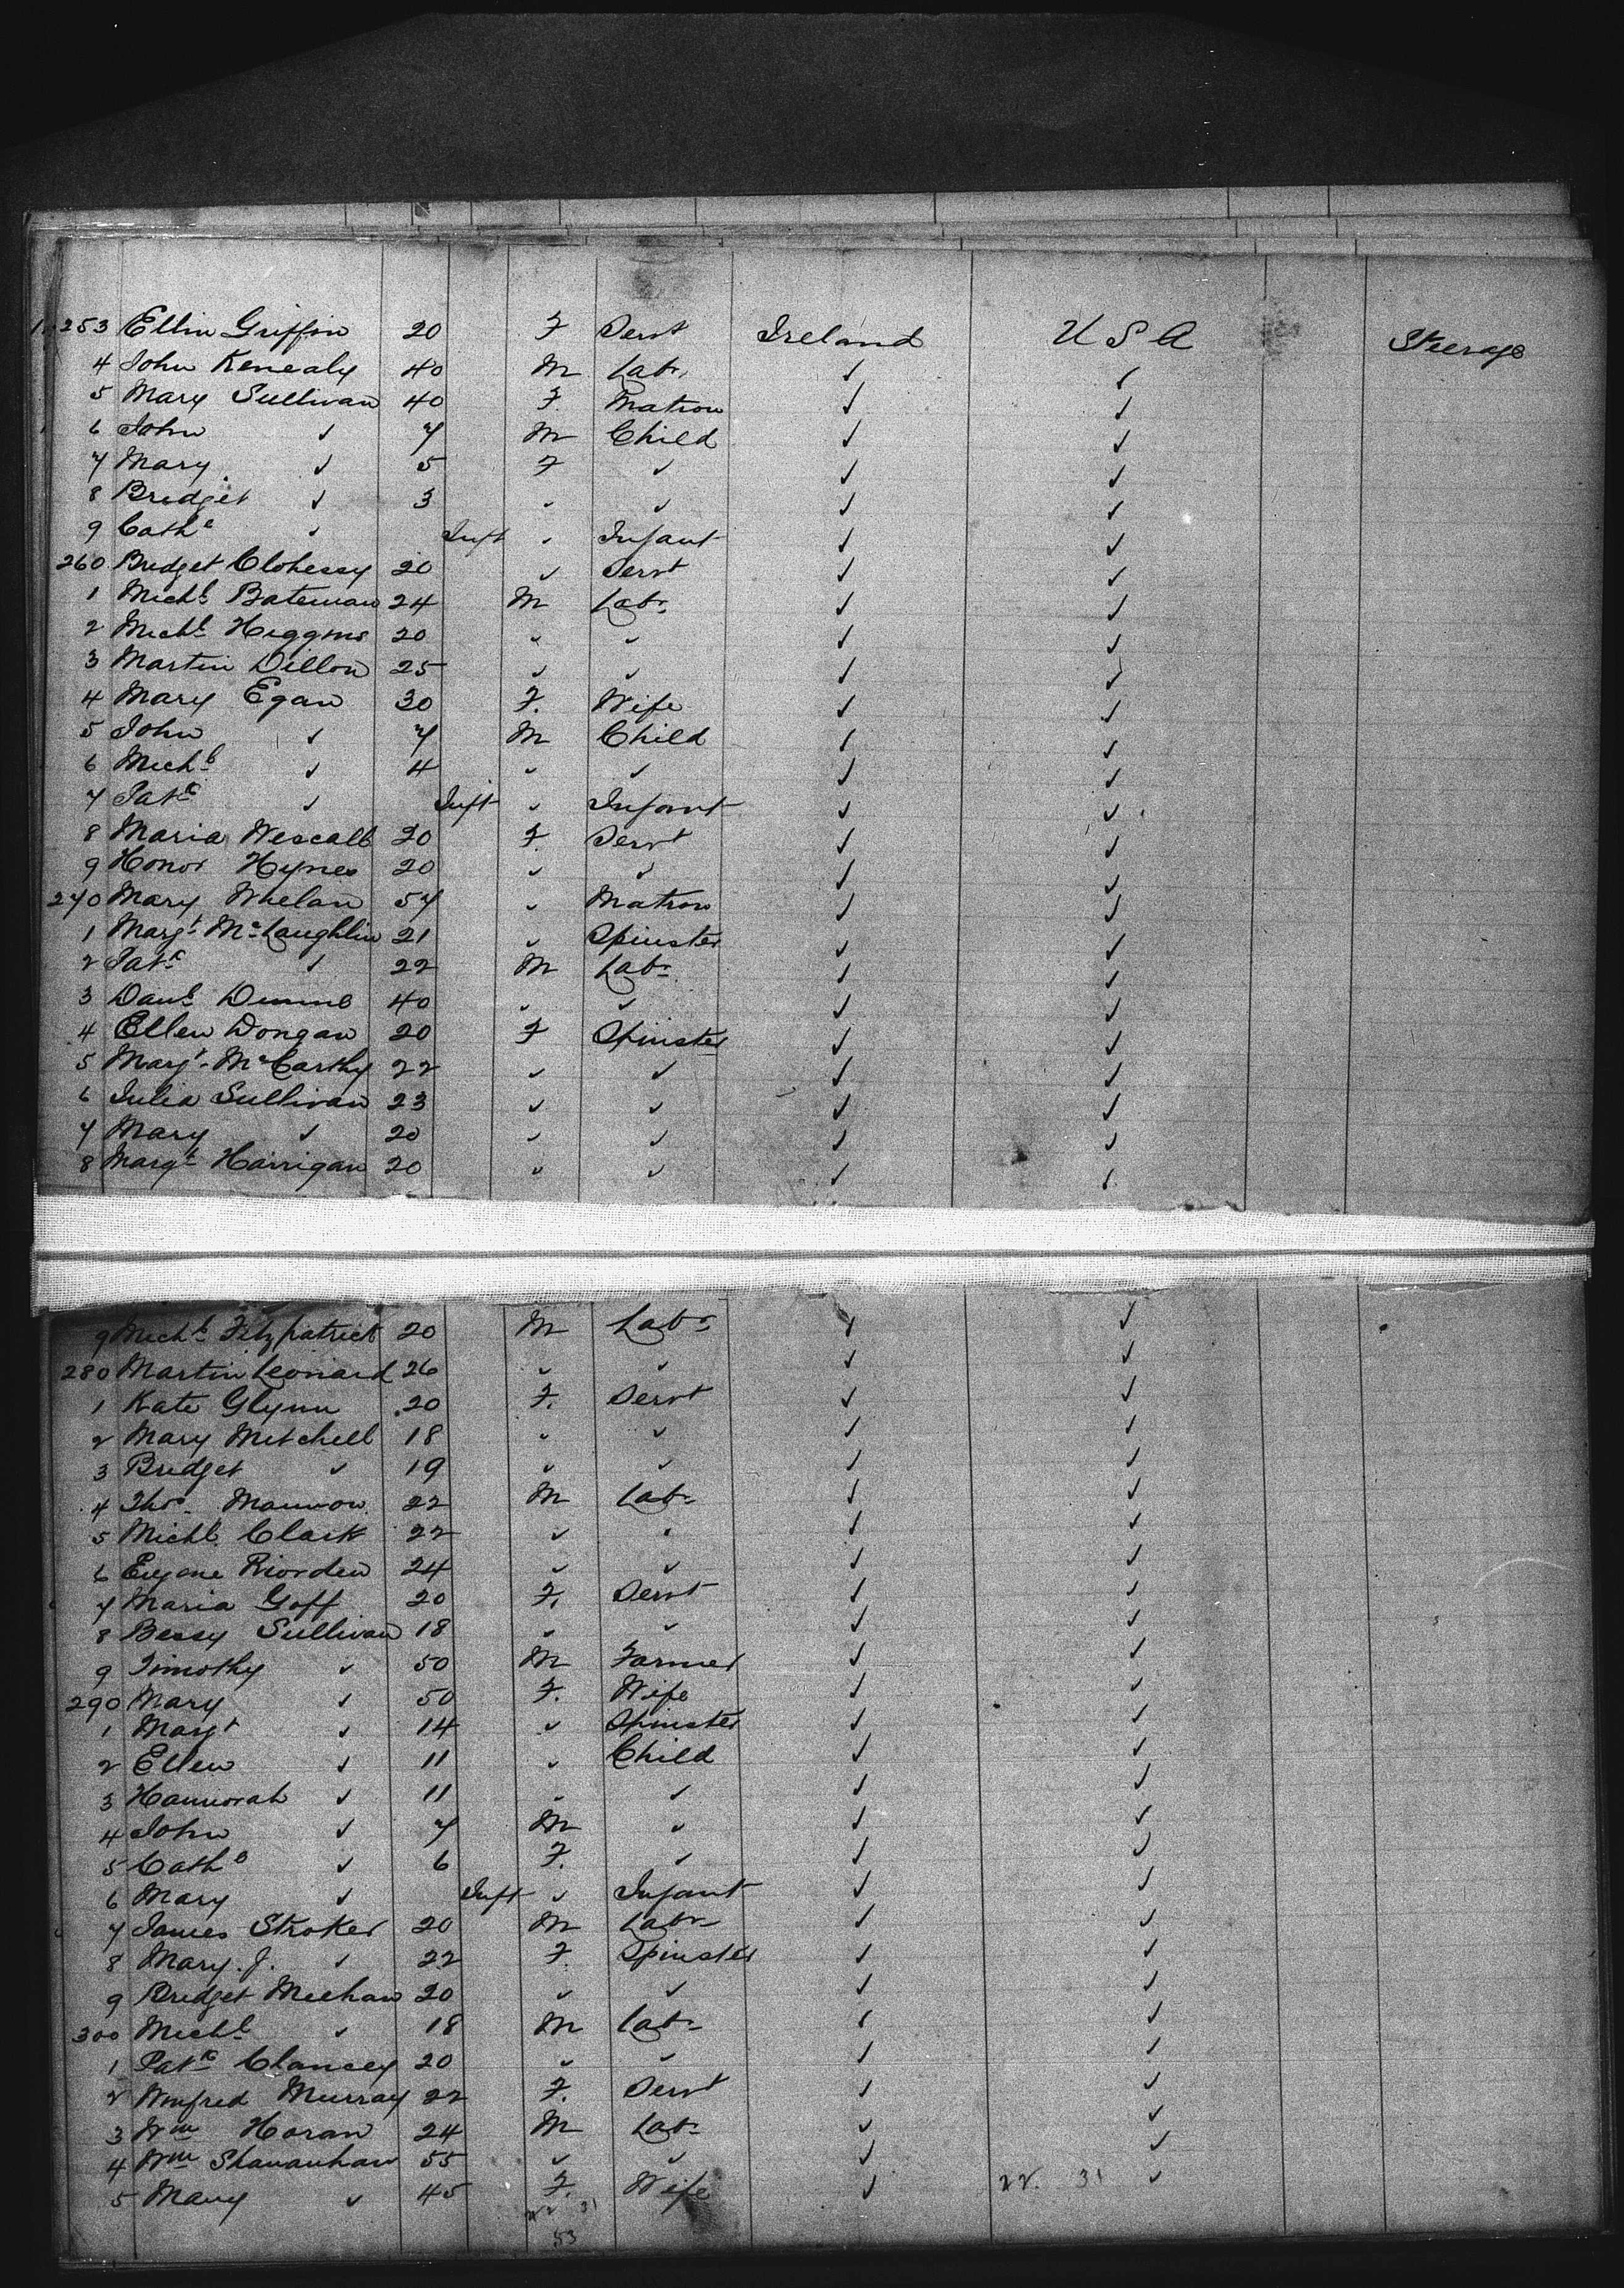 253 Ellin Griffin 20 F Servt Ireland U S A Steerage
4 John Kenealy 40 M Labr ✓ ✓
5 Mary Sullivan 40 F. Matron ✓ ✓
6 John ✓ 7 M Child ✓ ✓
7 Mary ✓ 5 F ✓ ✓ ✓
8 Bridget ✓ 3 ✓ ✓ ✓ ✓
9 Cathe ✓ Inft ✓ Infant ✓ ✓
260 Bridget Clohessy 20 ✓ Servt ✓ ✓
1 Michl Bateman 24 M Labr ✓ ✓
2 Michl Higgins 20 ✓ ✓ ✓ ✓
3 Martin Dillon 25 ✓ ✓ ✓ ✓
4 Mary Egan 30 F. Wife ✓ ✓
5 John ✓ 7 M Child ✓ ✓
6 Michl ✓ 4 ✓ ✓ ✓ ✓
7 Patk ✓ Inft ✓ Infant ✓ ✓
8 Maria 20 F. Servt ✓ ✓
9 Honor Hynes 20 ✓ ✓ ✓ ✓
270 Mary Whelan 57 ✓ Matron ✓ ✓
1 Margt McLaughlin 21 ✓ Spinster ✓ ✓
2 Patk ✓ 22 M Labr ✓ ✓
3 Danl 40 ✓ ✓ ✓ ✓
4 Ellen Dongan 20 F Spinster ✓ ✓
5 Margt McCarthy 22 ✓ ✓ ✓ ✓
6 Julia Sullivan 23 ✓ ✓ ✓ ✓
7 Mary ✓ 20 ✓ ✓ ✓ ✓
8 Margt Harrigan 20 ✓ ✓ ✓ ✓
9 Michl Fitzpatrick 20 M Labr ✓ ✓
280 Martin Leonard 26 ✓ ✓ ✓ ✓
1 Kate Glynn 20 F. Servt ✓ ✓
2 Mary Mitchell 18 ✓ ✓ ✓ ✓
3 Bridget ✓ 19 ✓ ✓ ✓ ✓
4 Thos Mannon 22 M Labr ✓ ✓
5 Michl Clark 22 ✓ ✓ ✓ ✓
6 Eugene Riorden 24 ✓ ✓ ✓ ✓
7 Maria Goff 20 F. Servt ✓ ✓
8 Bessy Sullivan 18 ✓ ✓ ✓ ✓
9 Timothy ✓ 50 M Farmer ✓ ✓
290 Mary ✓ 50 F. Wife ✓ ✓
1 Margt ✓ 14 ✓ Spinster ✓ ✓
2 Ellen ✓ 11 ✓ Child ✓ ✓
3 Hannorah ✓ 11 ✓ ✓ ✓ ✓
4 John ✓ 7 M ✓ ✓ ✓
5 Cathe ✓ 6 F. ✓ ✓ ✓
6 Mary ✓ Inft ✓ Infant ✓ ✓
7 James Stroker 20 M Labr ✓ ✓
8 Mary. J. ✓ 22 F. Spinster ✓ ✓
9 Bridget Meehan 20 ✓ ✓ ✓ ✓
300 Michl ✓ 18 M Labr ✓ ✓
1 Patk Clancey 20 ✓ ✓ ✓ ✓
2 Winfred Murray 22 F. Servt ✓ ✓
3 Wm Horan 24 M Labr ✓ ✓
4 Wm Shanauhan 55 ✓ ✓ ✓ ✓
5 Mary ✓ 45 F. Wife ✓ 22. 31 ✓
22 31
53